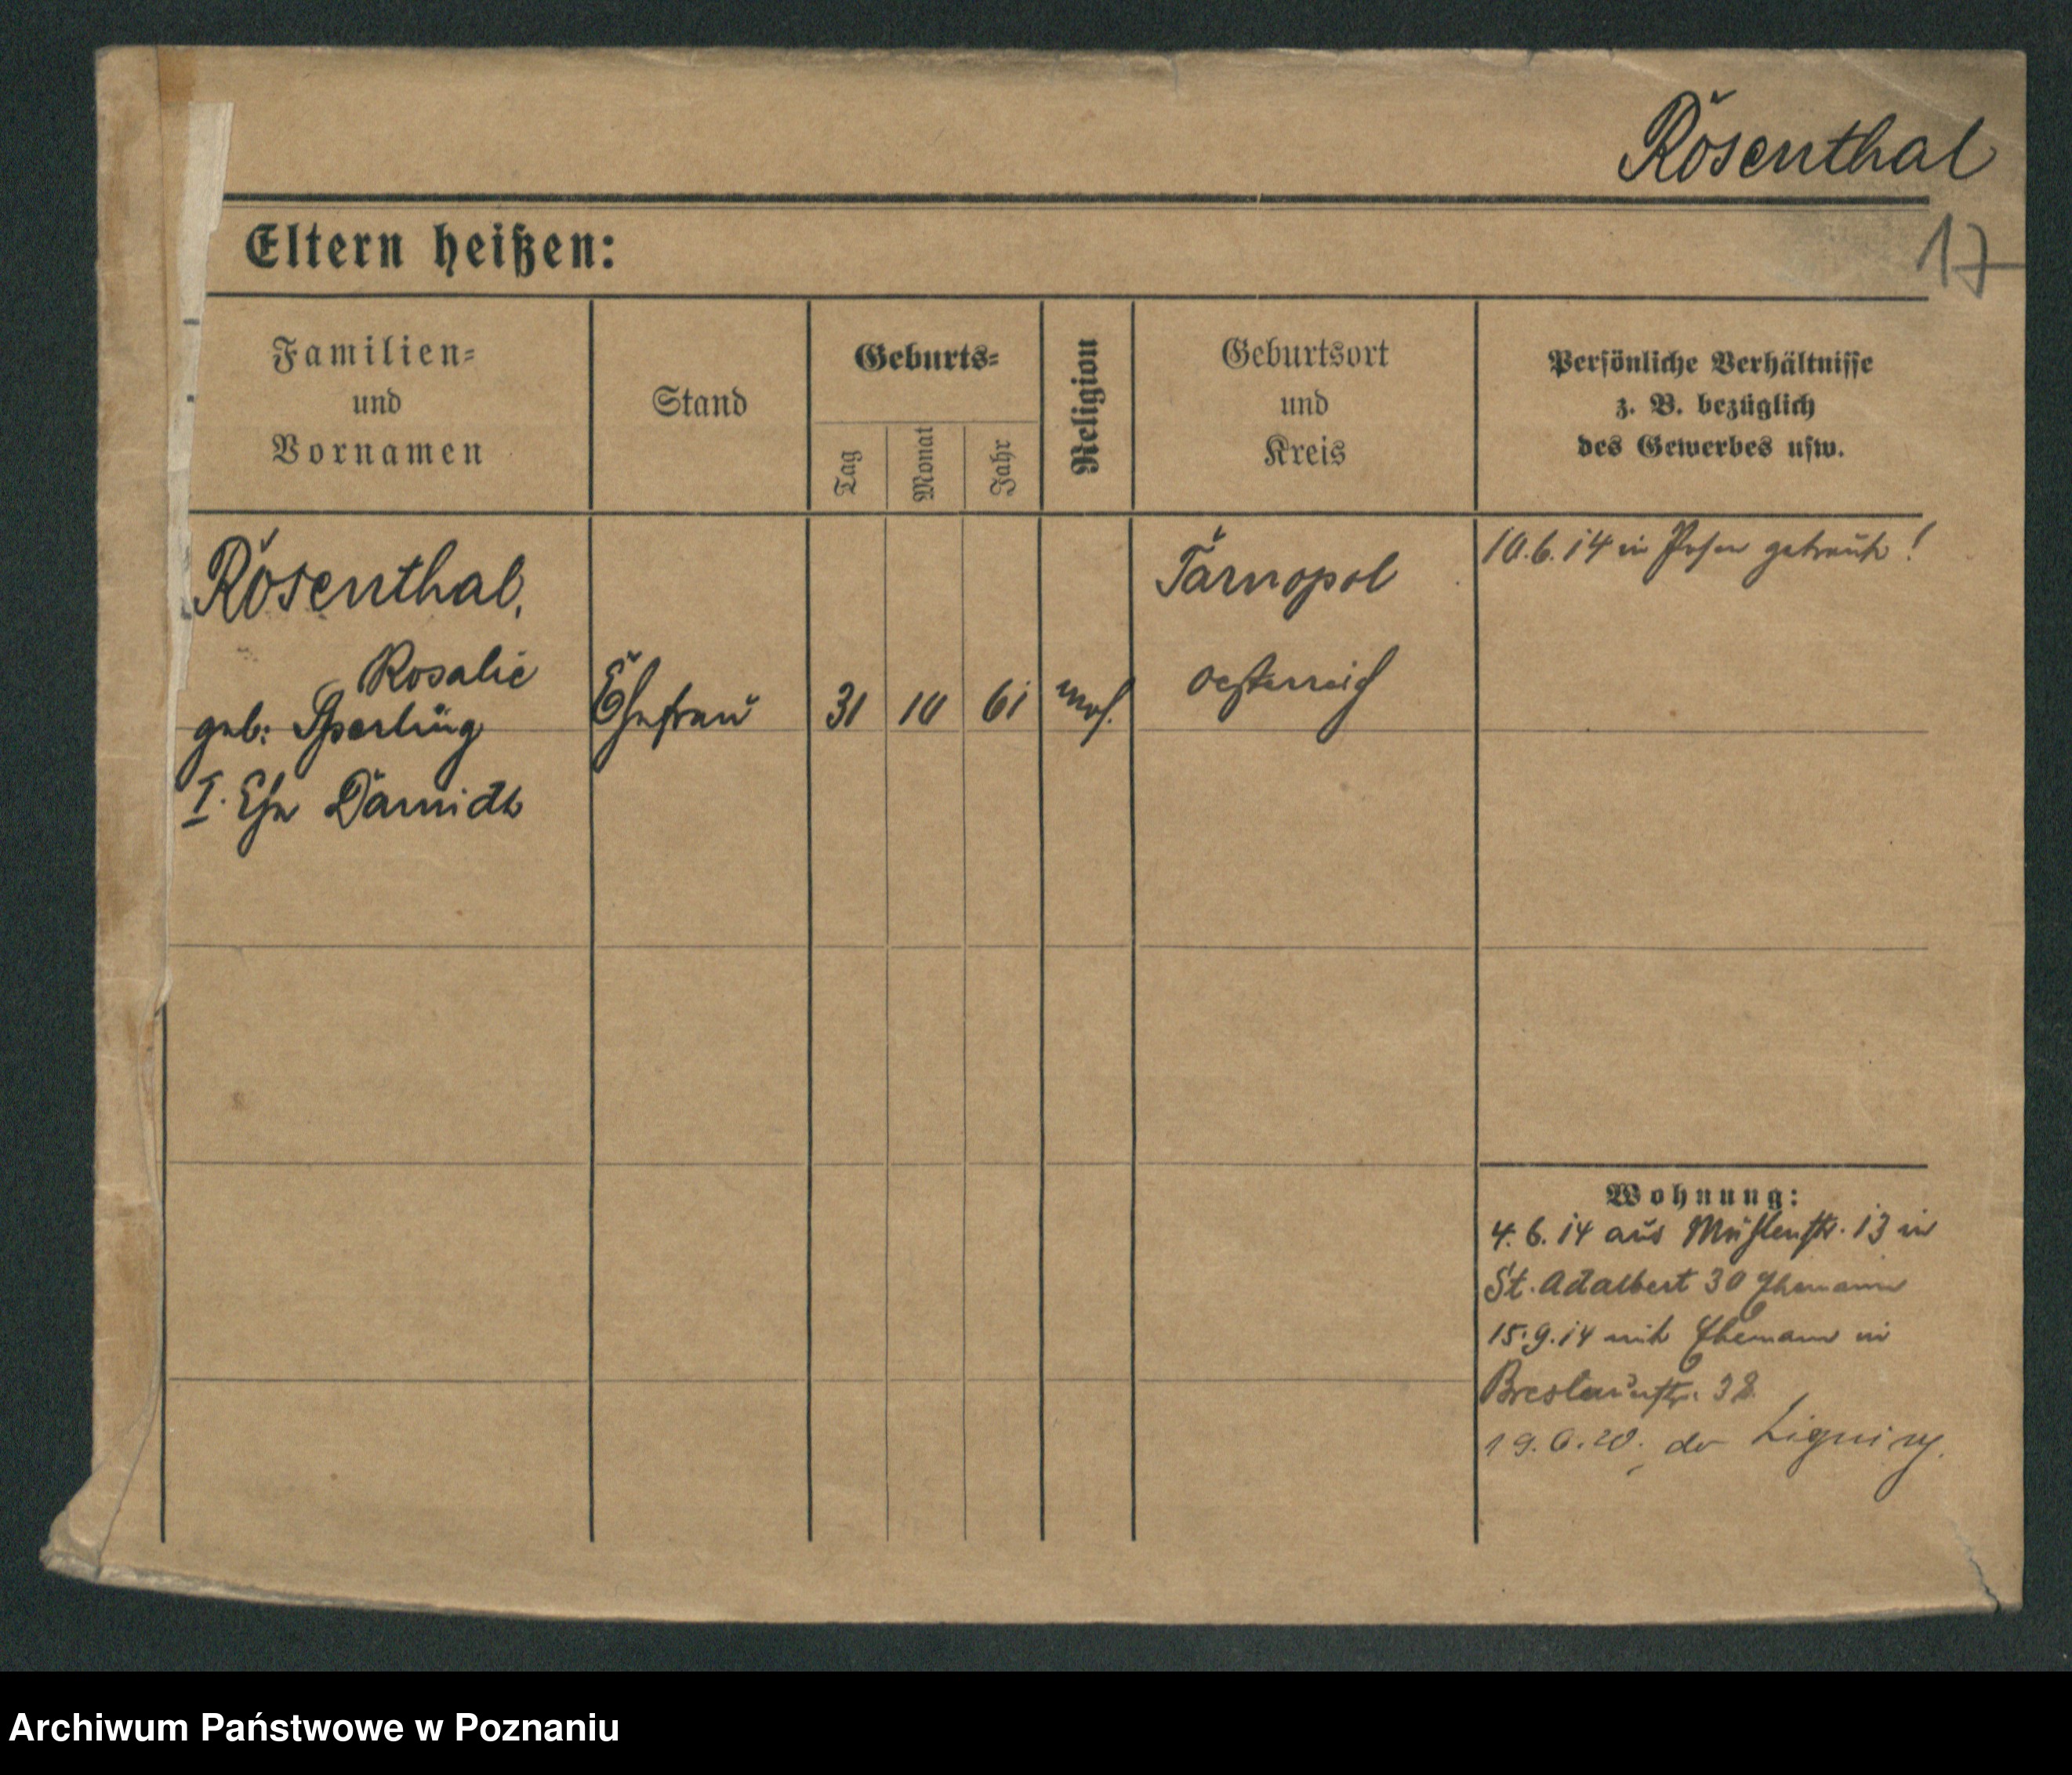 Rosenthal
17
Eltern heißen:
Familien=
und
Vornamen
Stand
Geburts=
Tag
Monat
Jahr
Religion
Geburtsort
und
Kreis
Persönliche Verhältnisse
z. B. bezüglich
des Gewerbes usw.
Rosenthal,
Rosalie
geb: Sperling
I. Ehe
Ehefrau
31
10
61
mos.
Tarnopol
Oesterreich
10.6.14 in Posen getraut!
Wohnung:
4.6.14 aus Mühlenstr. 13 in
St. Adalbert 30 Ehemann
15.9.14 mit Ehemann in
Breslauerstr. 38
Archiwum Państwowe w Poznaniu